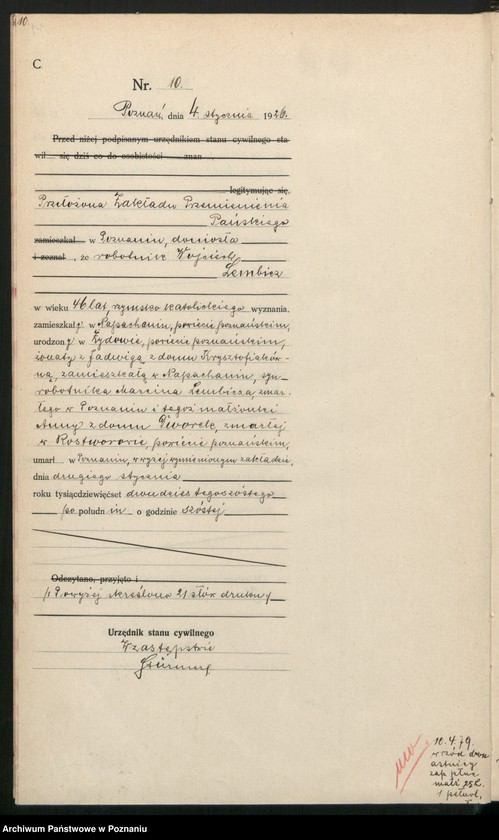 10.
C
Nr. 10.
Poznań, dnia 4. stycznia 1926.
Przed niżej podpisanym urzędnikiem stanu cywilnego sta
wił się dziś co do osobistości znan
legitymując się
Przełożona Zakładu Przemienienia
Pańskiego
zamieszkał w Poznaniu, doniosła
i zeznał, że robotnik Wojciech
Lembicz
w wieku 46 lat, rzymsko katolickiego wyznania,
zamieszkały w Napachaniu, powiecie poznańskim,
urodzony w Żydowie, powiecie poznańskim,
żonaty z Jadwigą z domu Krysztofiaków-
ną, zamieszkałą w Napachaniu, syn
robotnika Marcina Lembicza zmar-
łego w Poznaniu i tegoż małżonki
Anny z domu Dworek, zmarłej
w Rostworowie, powiecie poznańskim,
umarł w Poznaniu, w wyżej wymienionym zakładzie,
dnia drugiego stycznia
roku tysiącdziewięćset dwudziestegoszóstego
po południu o godzinie szóstej
Odczytano, przyjęto i
Powyżej skreślono 21 słów druku
Urzędnik stanu cywilnego
W zastępstwie
10. 4. 79.
Archiwum Państwowe w Poznaniu